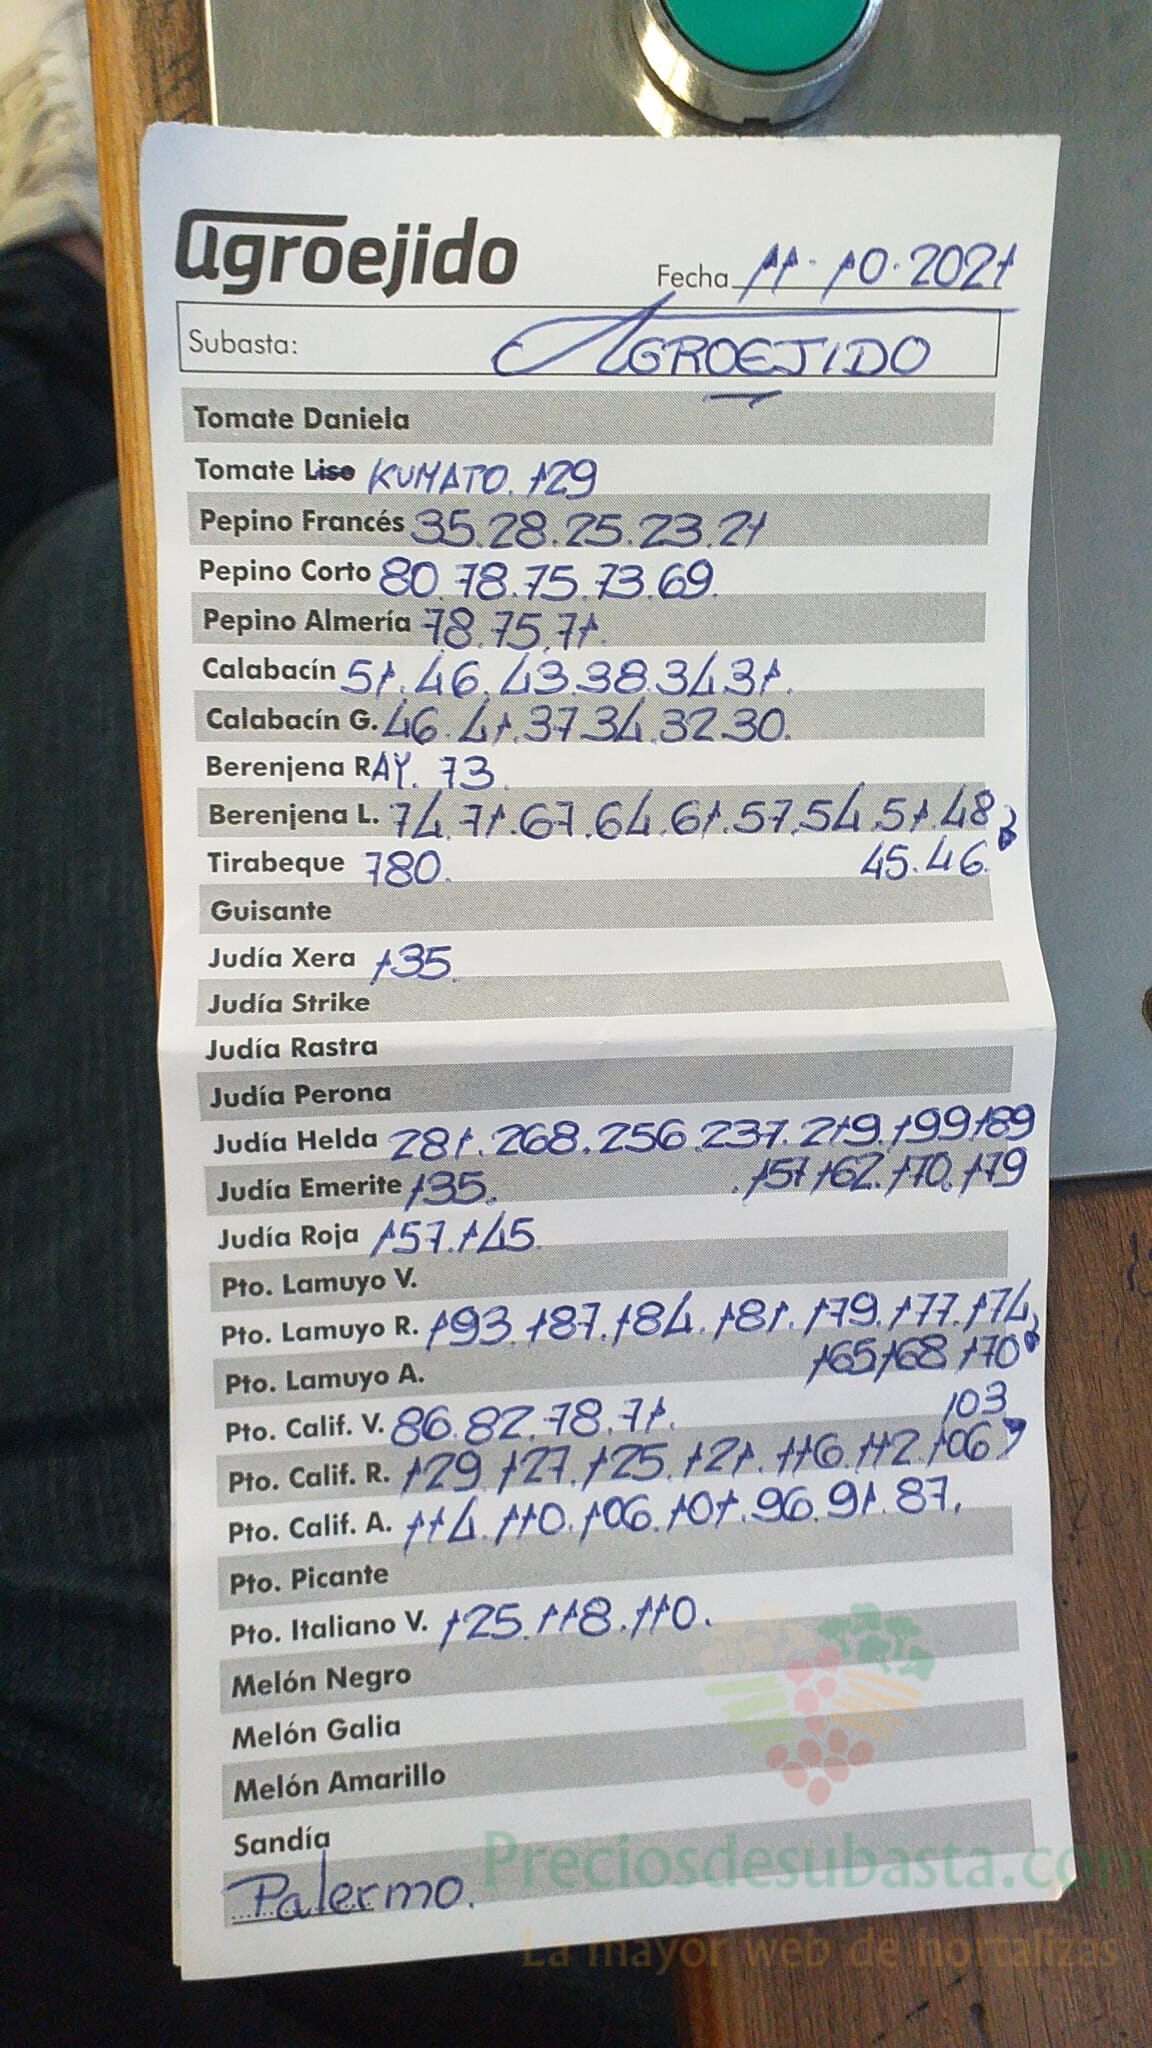 agroejido
Fecha 11.10.2021
Subasta: AGROEJIDO
Tomate Daniela
Tomate Liso KUMATO. 129
Pepino Francés 35.28.25.23.21
Pepino Corto 80.78.75.73.69.
Pepino Almería 78.75.71.
Calabacín 51.46.43.38.34.31.
Calabacín G. 46.41.37.34.32.30.
Berenjena RAY. 73.
Berenjena L. 74.71.67.64.61.57.54.51.48
Tirabeque 780. 45.46.
Guisante
Judía Xera 135.
Judía Strike
Judía Rastra
Judía Perona
Judía Helda 281.268.256.237.219.199.189
Judía Emerite 135. .157.162.170.179
Judía Roja 157.145.
Pto. Lamuyo V.
Pto. Lamuyo R. 193.187.184.181.179.177.174
Pto. Lamuyo A. 165.168.170
Pto. Calif. V. 86.82.78.71. 103
Pto. Calif. R. 129.127.125.121.116.112.106
Pto. Calif. A. 114.110.106.101.96.91.87.
Pto. Picante
Pto. Italiano V. 125.118.110.
Melón Negro
Melón Galia
Melón Amarillo
Sandía
Palermo.
Preciosdesubasta.com
La mayor web de hortalizas